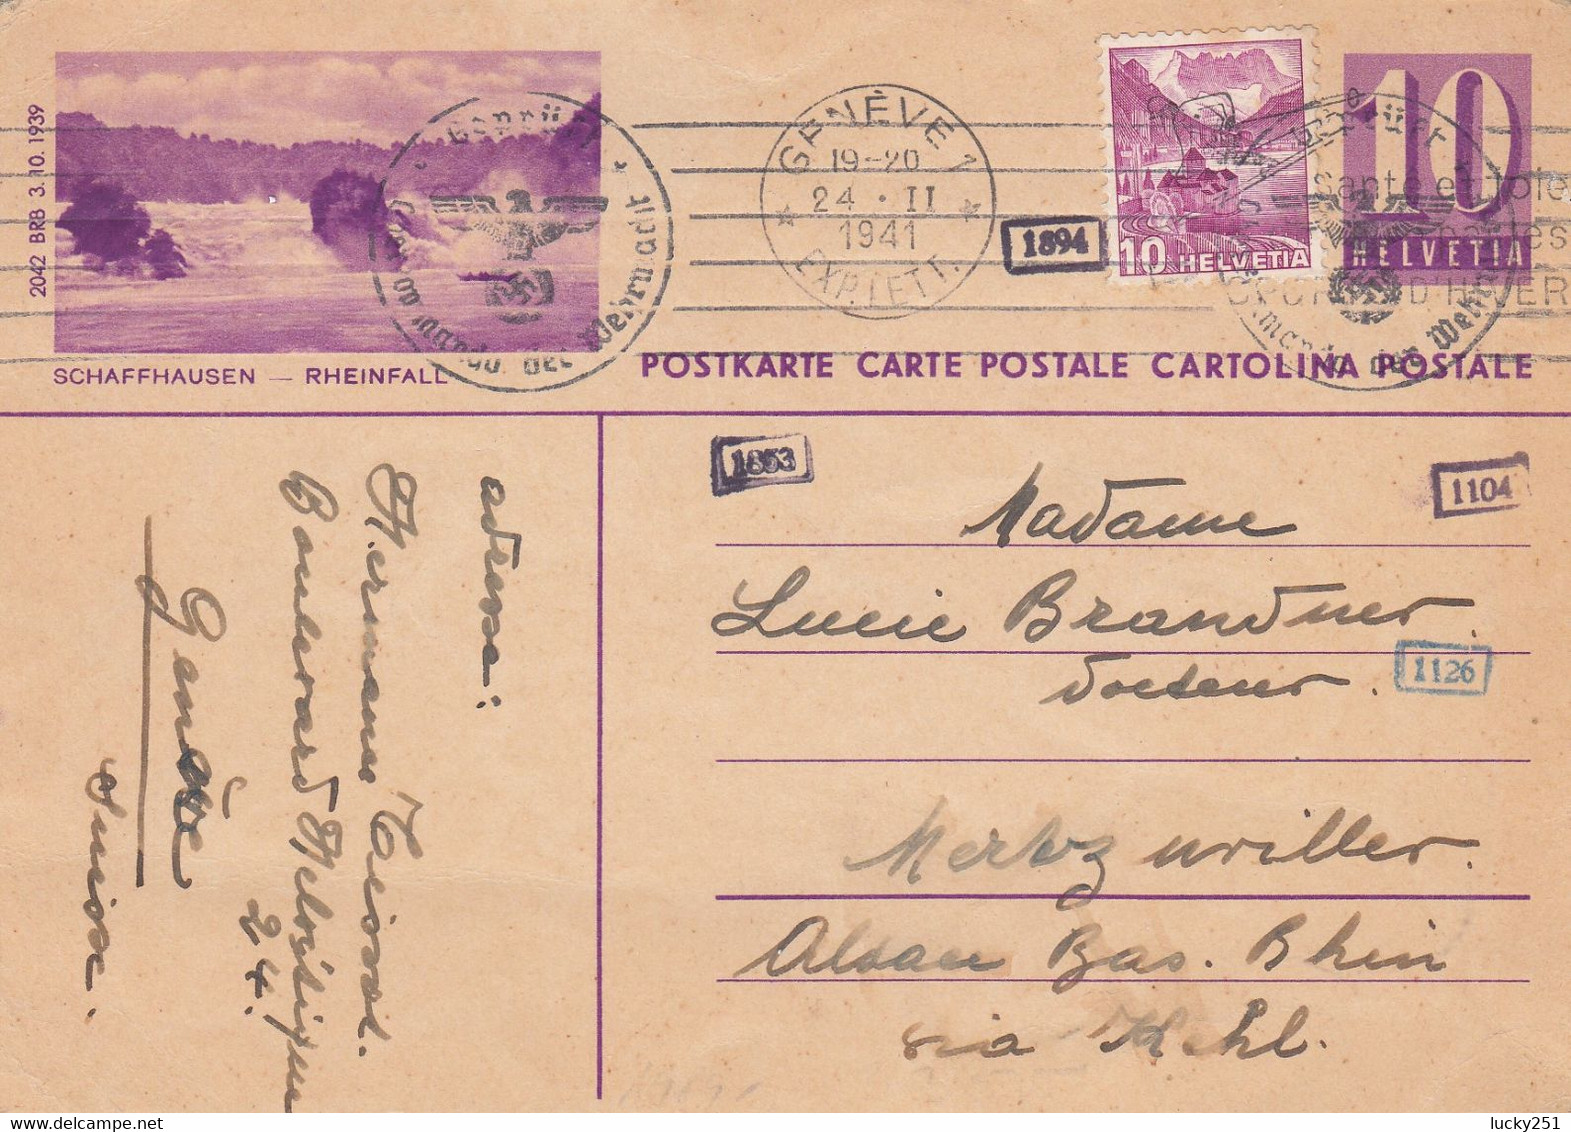 2042 BRB 3.10.1939
SCHAFFHAUSEN — RHEINFALL
Geprüft
Oberkommando der Wehrmacht
GENÈVE 1
19-20
24 · II
1941
EXP. LETT.
1894
10 HELVETIA
Geprüft
Oberkommando der Wehrmacht
10
HELVETIA
POSTKARTE CARTE POSTALE CARTOLINA POSTALE
1853
1104
Madame
Lucie Brandner
docteur.
1126
Mertzwiller.
Alsace Bas. Rhin
via Kehl.
adresse:
Hermann
Boulevard Helvétique
24.
Genève
Suisse.
lucky251